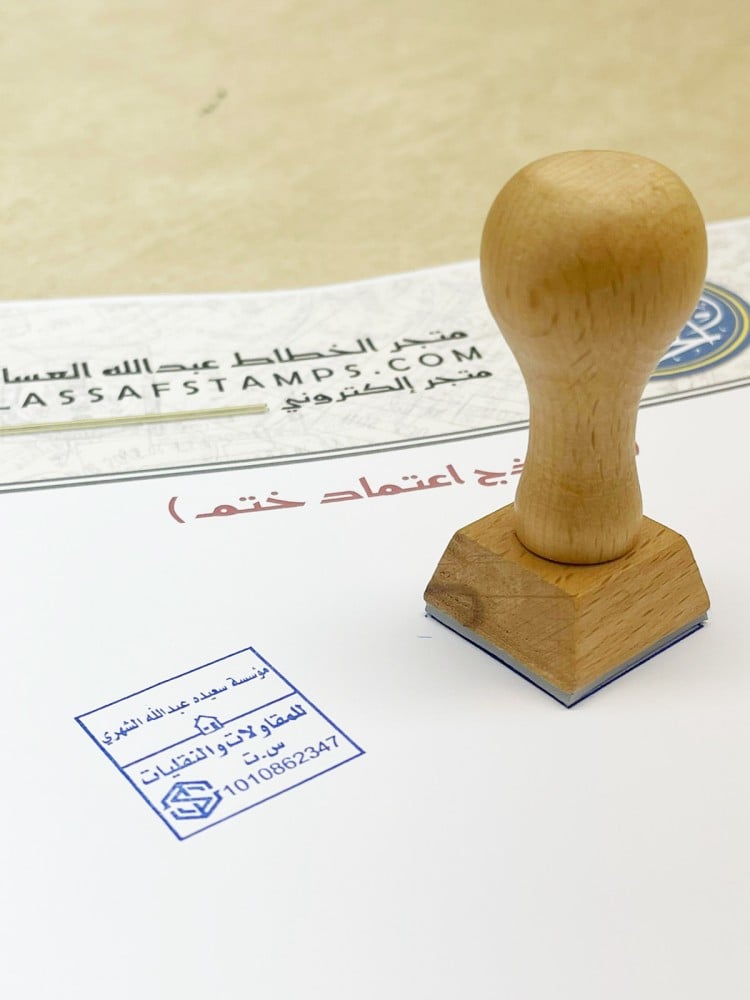 متجر الخطاط عبدالله
LASSAFSTAMPS.COM
متجر إلكتروني
اعتماد ختم )
مؤسسة سعيده عبدالله الشهري
للمقاولات والنقليات
س.ت
1010862347